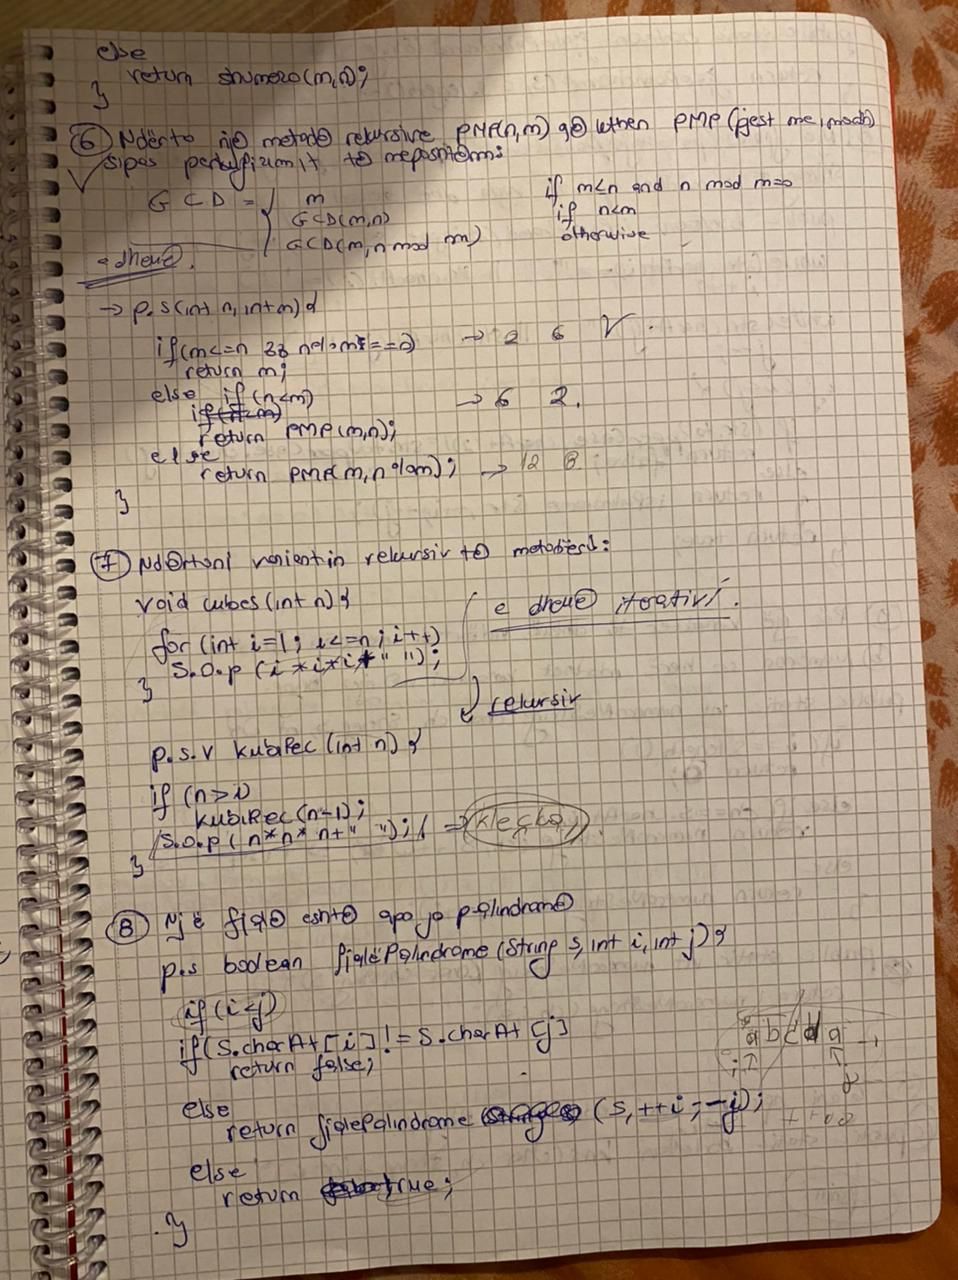 else
return shumezo(m,n);
}
6 Ndërto një metodë rekursive PMP(n,m) që kthen PMP (pjest me, madh)
sipas perkufizimit të meposhtëm:
GCD = { m if m<n and n mod m=0
GCD(m,n) if n<m
GCD(m, n mod m) otherwise
e dhenë.
→ p.s(int n, int m){
if(m<=n && n%m==0) → 2 6 V
return m;
else if (n<m) → 6 2.
return PMP(m,n);
else
return PMP(m,n%m); → 12 8
}
7 Ndërtoni variantin rekursiv të metodës:
void cubes(int n){
for (int i=1; i<=n; i++) e dhenë iterativ.
S.O.p (i*i*i+" ");
}
rekursiv
p.s.v kubiRec (int n) {
if (n>1)
kubiRec(n-1);
S.o.p( n*n*n+" "); ⇒
}
8 Një fjalë eshtë apo jo palindromë
p.s boolean fjalëPalindrome (String s, int i, int j) {
if (i<j)
if(s.charAt[i] != s.charAt[j]
return false; i ↑
else
return fjalePalindrome (s, ++i, --j);
else
return true;
}